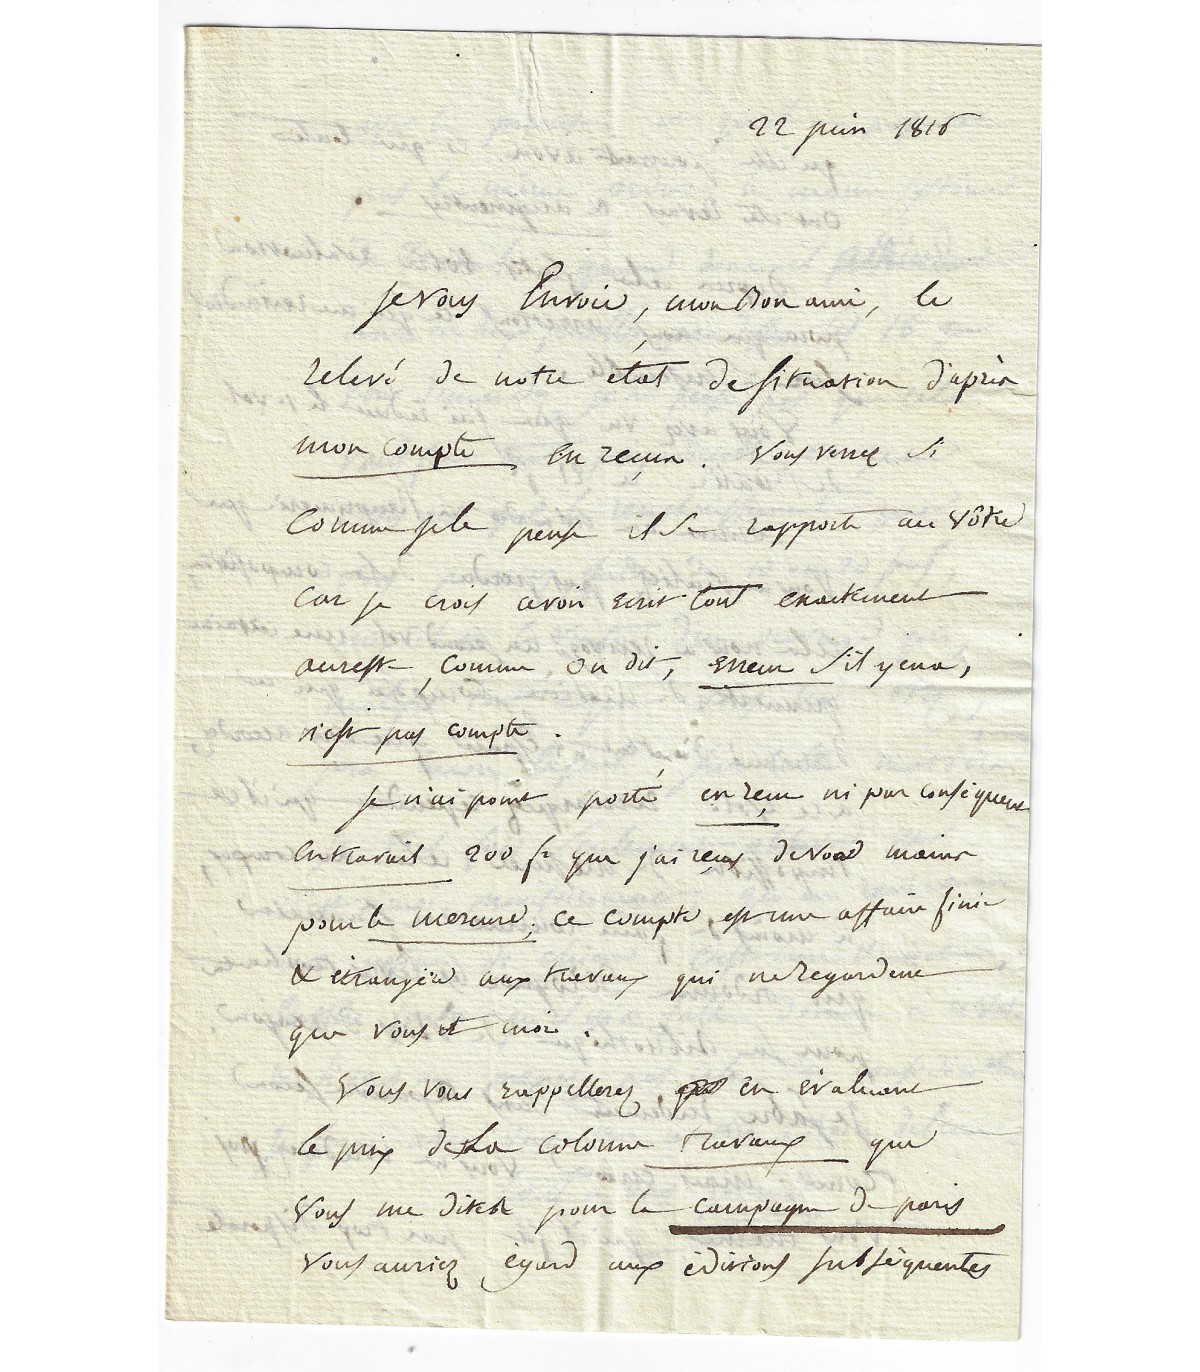 22 juin 1816
Je vous Envoie, mon Bon ami, le
relevé de notre état de situation d'après
mon compte en reçeu. Vous verrez si
comme je le pense il se rapporte au vôtre
Car je crois avoir ecrit tout exactement
au reste, comme on dit, erreur s'il y en a,
n'est pas compte.
Je n'ai point porté en reçeu ni par conséquent
en travail 200 f que j'ai reçus de vos mains
pour le mercure, ce compte, est une affaire finie
& étrangère aux travaux qui ne regardent
que vous et moi.
Vous vous rappellerez, en évaluant
le prix de la colonne travaux que
vous me dites pour la campagne de paris
vous auriez égard aux éditions subséquentes